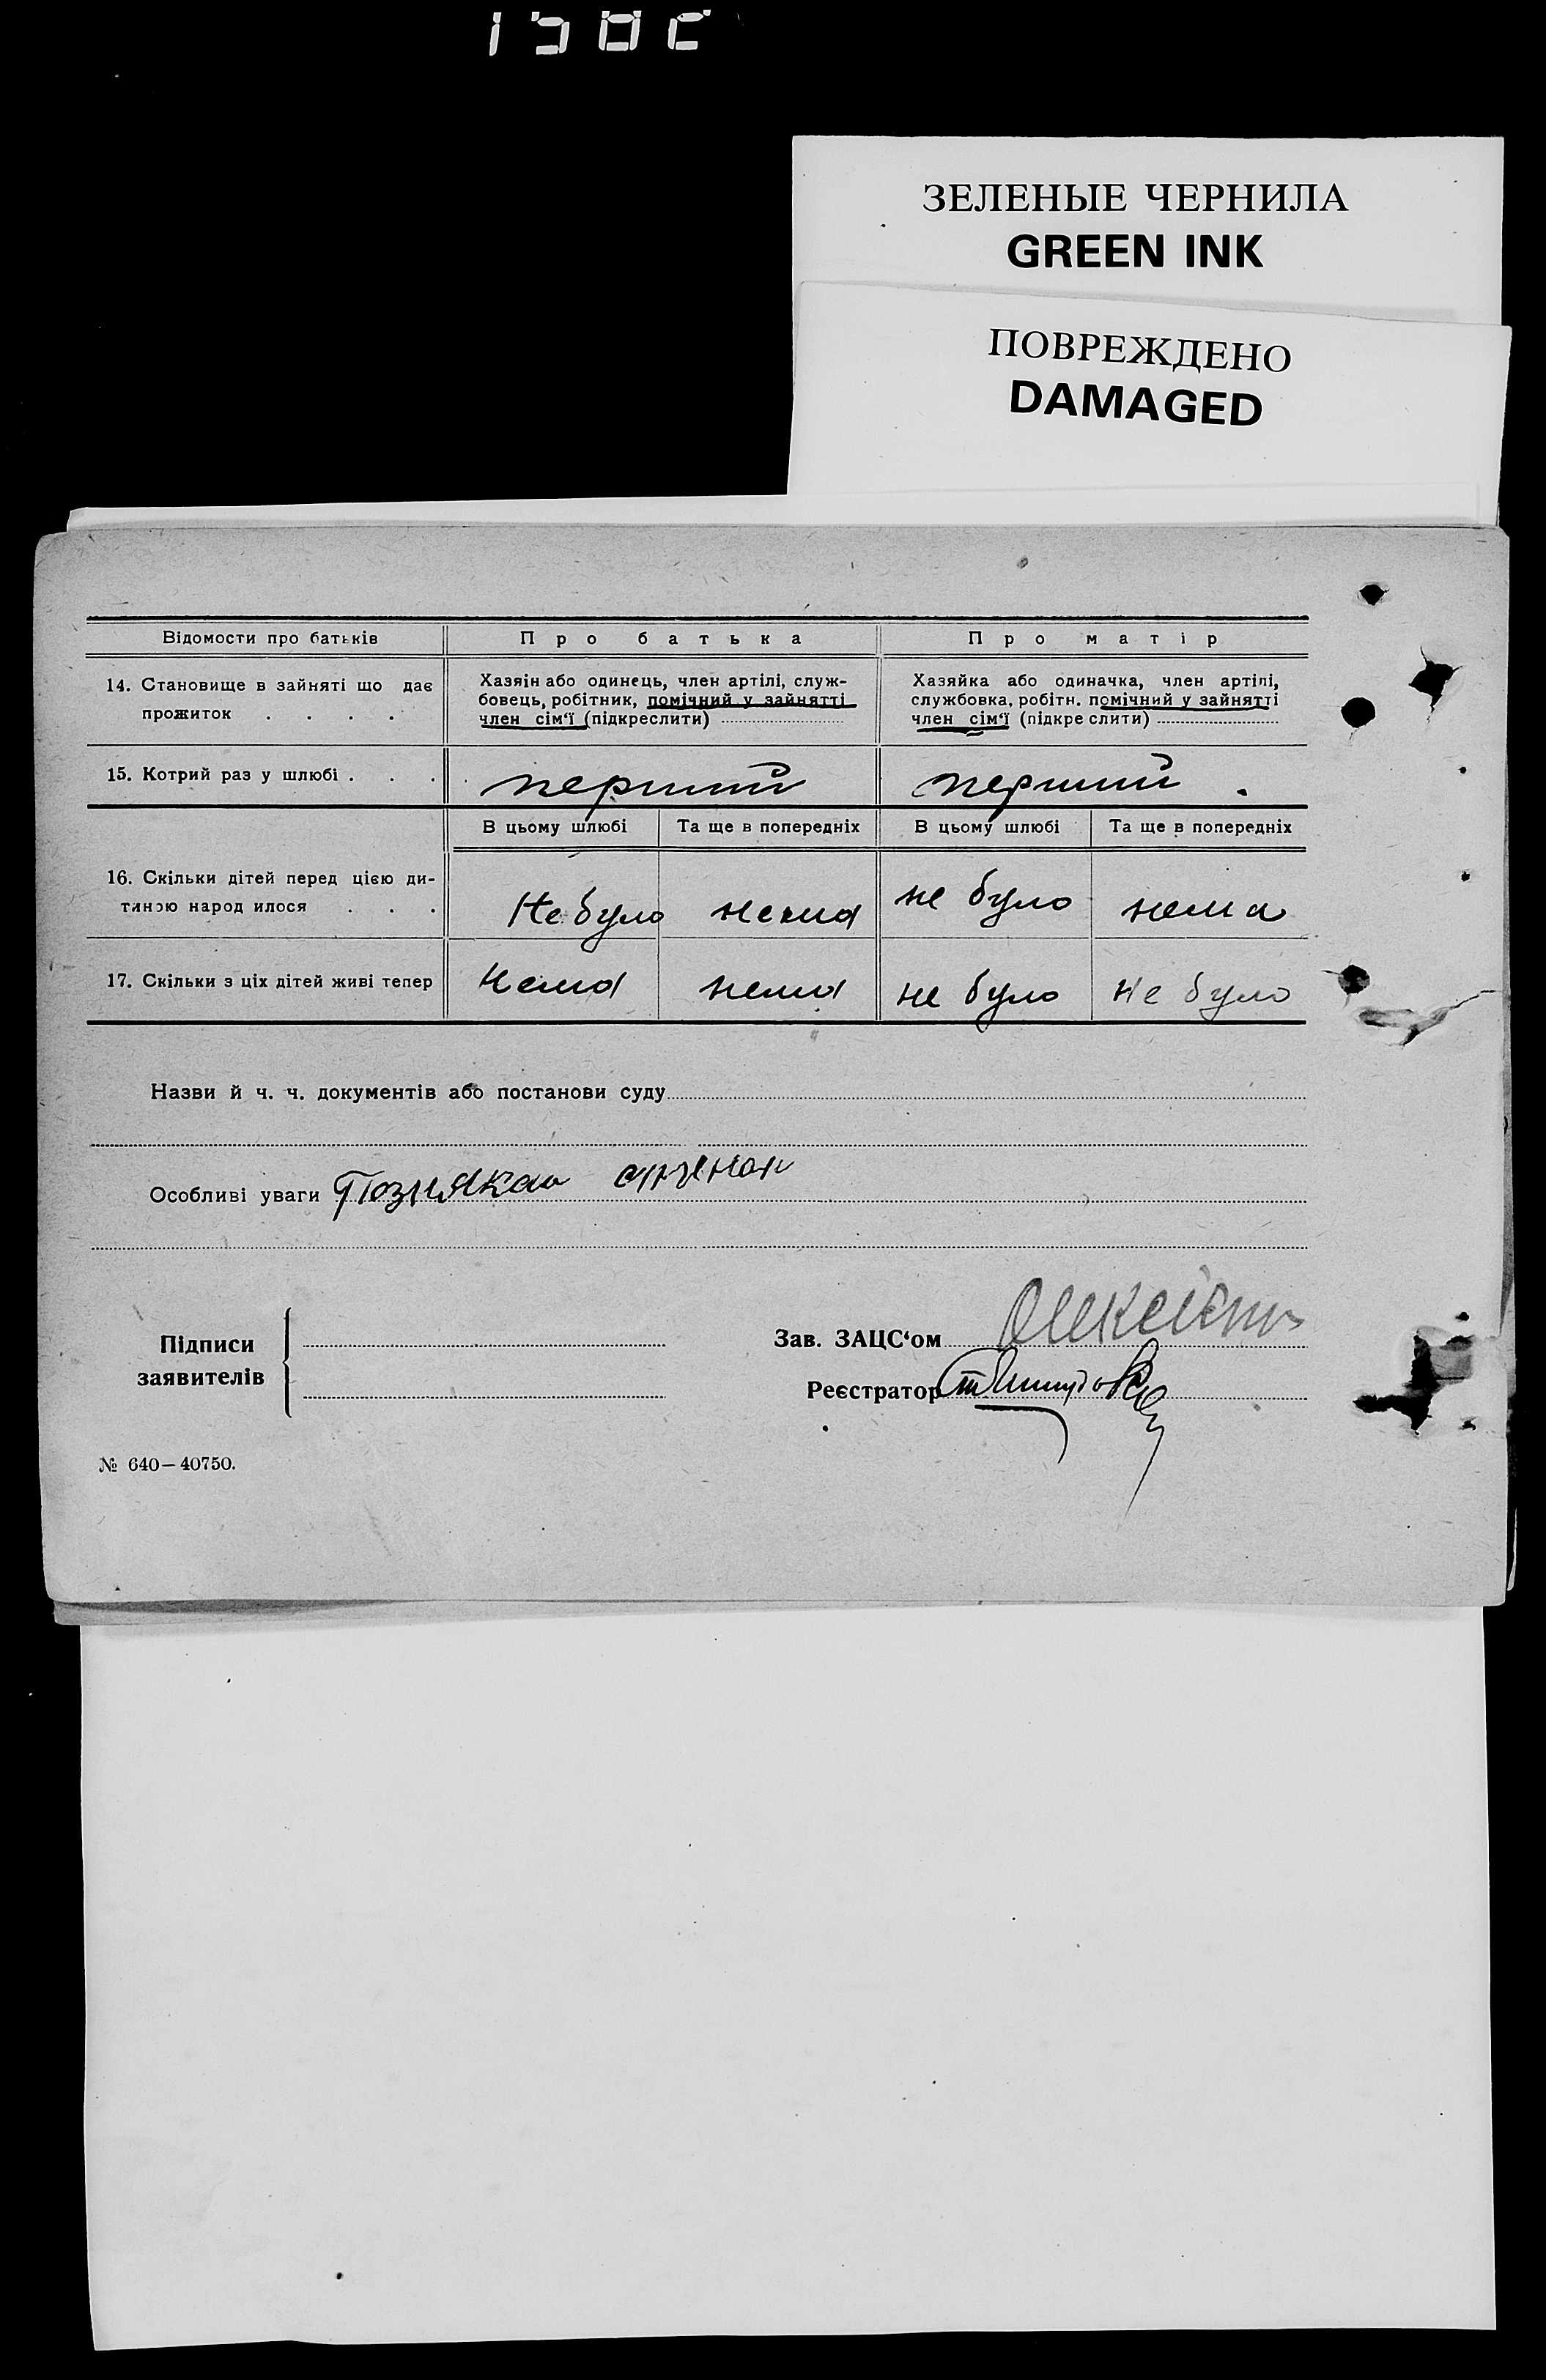 ЗЕЛЕНЫЕ ЧЕРНИЛА
GREEN INK
ПОВРЕЖДЕНО
DAMAGED
Відомости про батьків
Про батька
Про матір
14. Становище в зайняті що дає
прожиток . . . .
Хазяїн або одинець, член артілі, служ-
бовець, робітник, помічний у зайнятті
член сім'ї (підкреслити)
Хазяйка або одиначка, член артілі,
службовка, робітн. помічний у зайнятті
член сім'ї (підкреслити)
15. Котрий раз у шлюбі . . .
перший
перший
В цьому шлюбі
Та ще в попередніх
В цьому шлюбі
Та ще в попередніх
16. Скільки дітей перед цією ди-
тиною народилося . . .
Не було
нема
не було
нема
17. Скільки з ціх дітей живі тепер
Нема
нема
не було
Не було
Назви й ч. ч. документів або постанови суду
Особливі уваги
Підписи
заявителів
Зав. ЗАЦС'ом
Реєстратор
№ 640—40750.